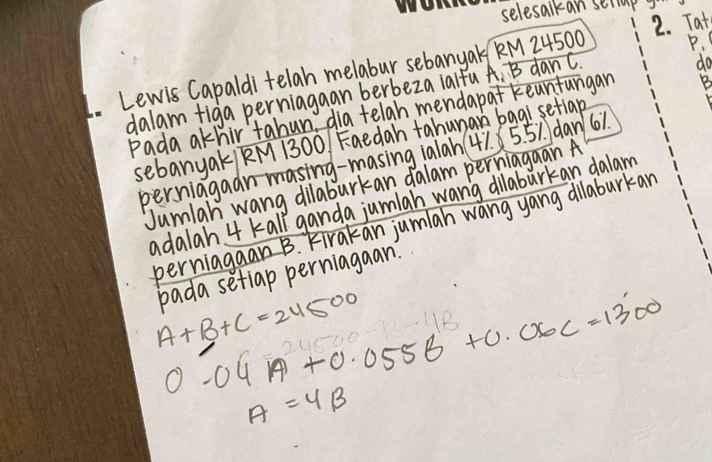 selesaikan setiap
1. Lewis Capaldi telah melabur sebanyak RM 24500
dalam tiga perniagaan berbeza iaitu A, B dan C.
Pada akhir tahun, dia telah mendapat keuntungan
sebanyak RM 1300. Faedah tahunan bagi setiap
perniagaan masing-masing ialah 4%, 5.5% dan 6%.
Jumlah wang dilaburkan dalam perniagaan A
adalah 4 kali ganda jumlah wang dilaburkan dalam
perniagaan B. Kirakan jumlah wang yang dilaburkan
pada setiap perniagaan.
A+B+C = 24500
0.04A + 0.055B + 0.06C = 1300
A = 4B
2. Tat
P.
da
B